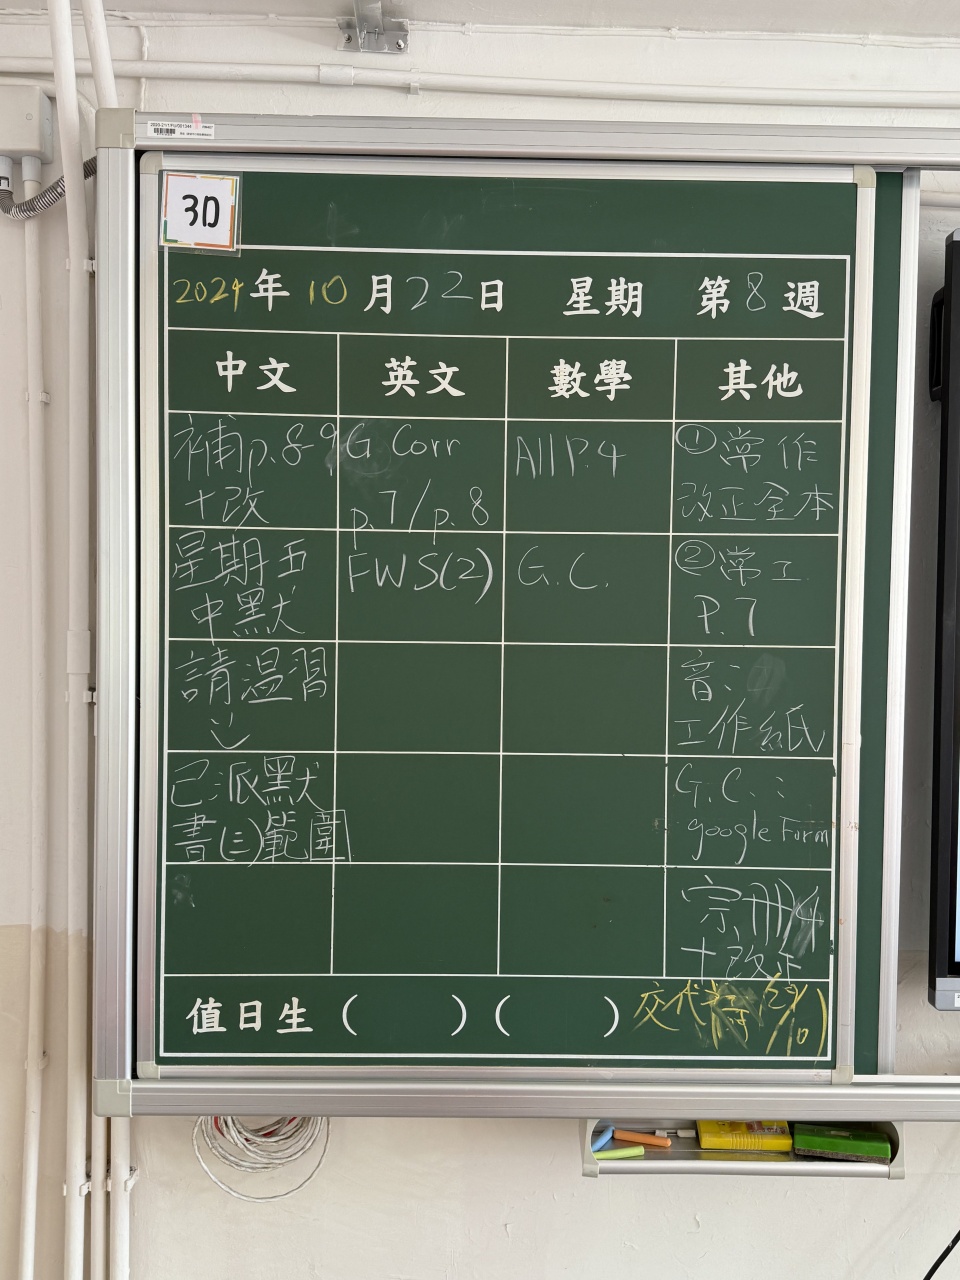 3D
2024年10月22日 星期 第8週
中文 英文 數學 其他
補p.89
十改
G Corr
p.7/p.8
All P.4
①常作
改正全本
星期五
中默
FWS(2)
G.C.
②常工
P.7
請溫習
音:
工作紙
已派默
書(三)範圍
G.C.:
google Form
宗冊4
十改正
值日生( )( )
交代